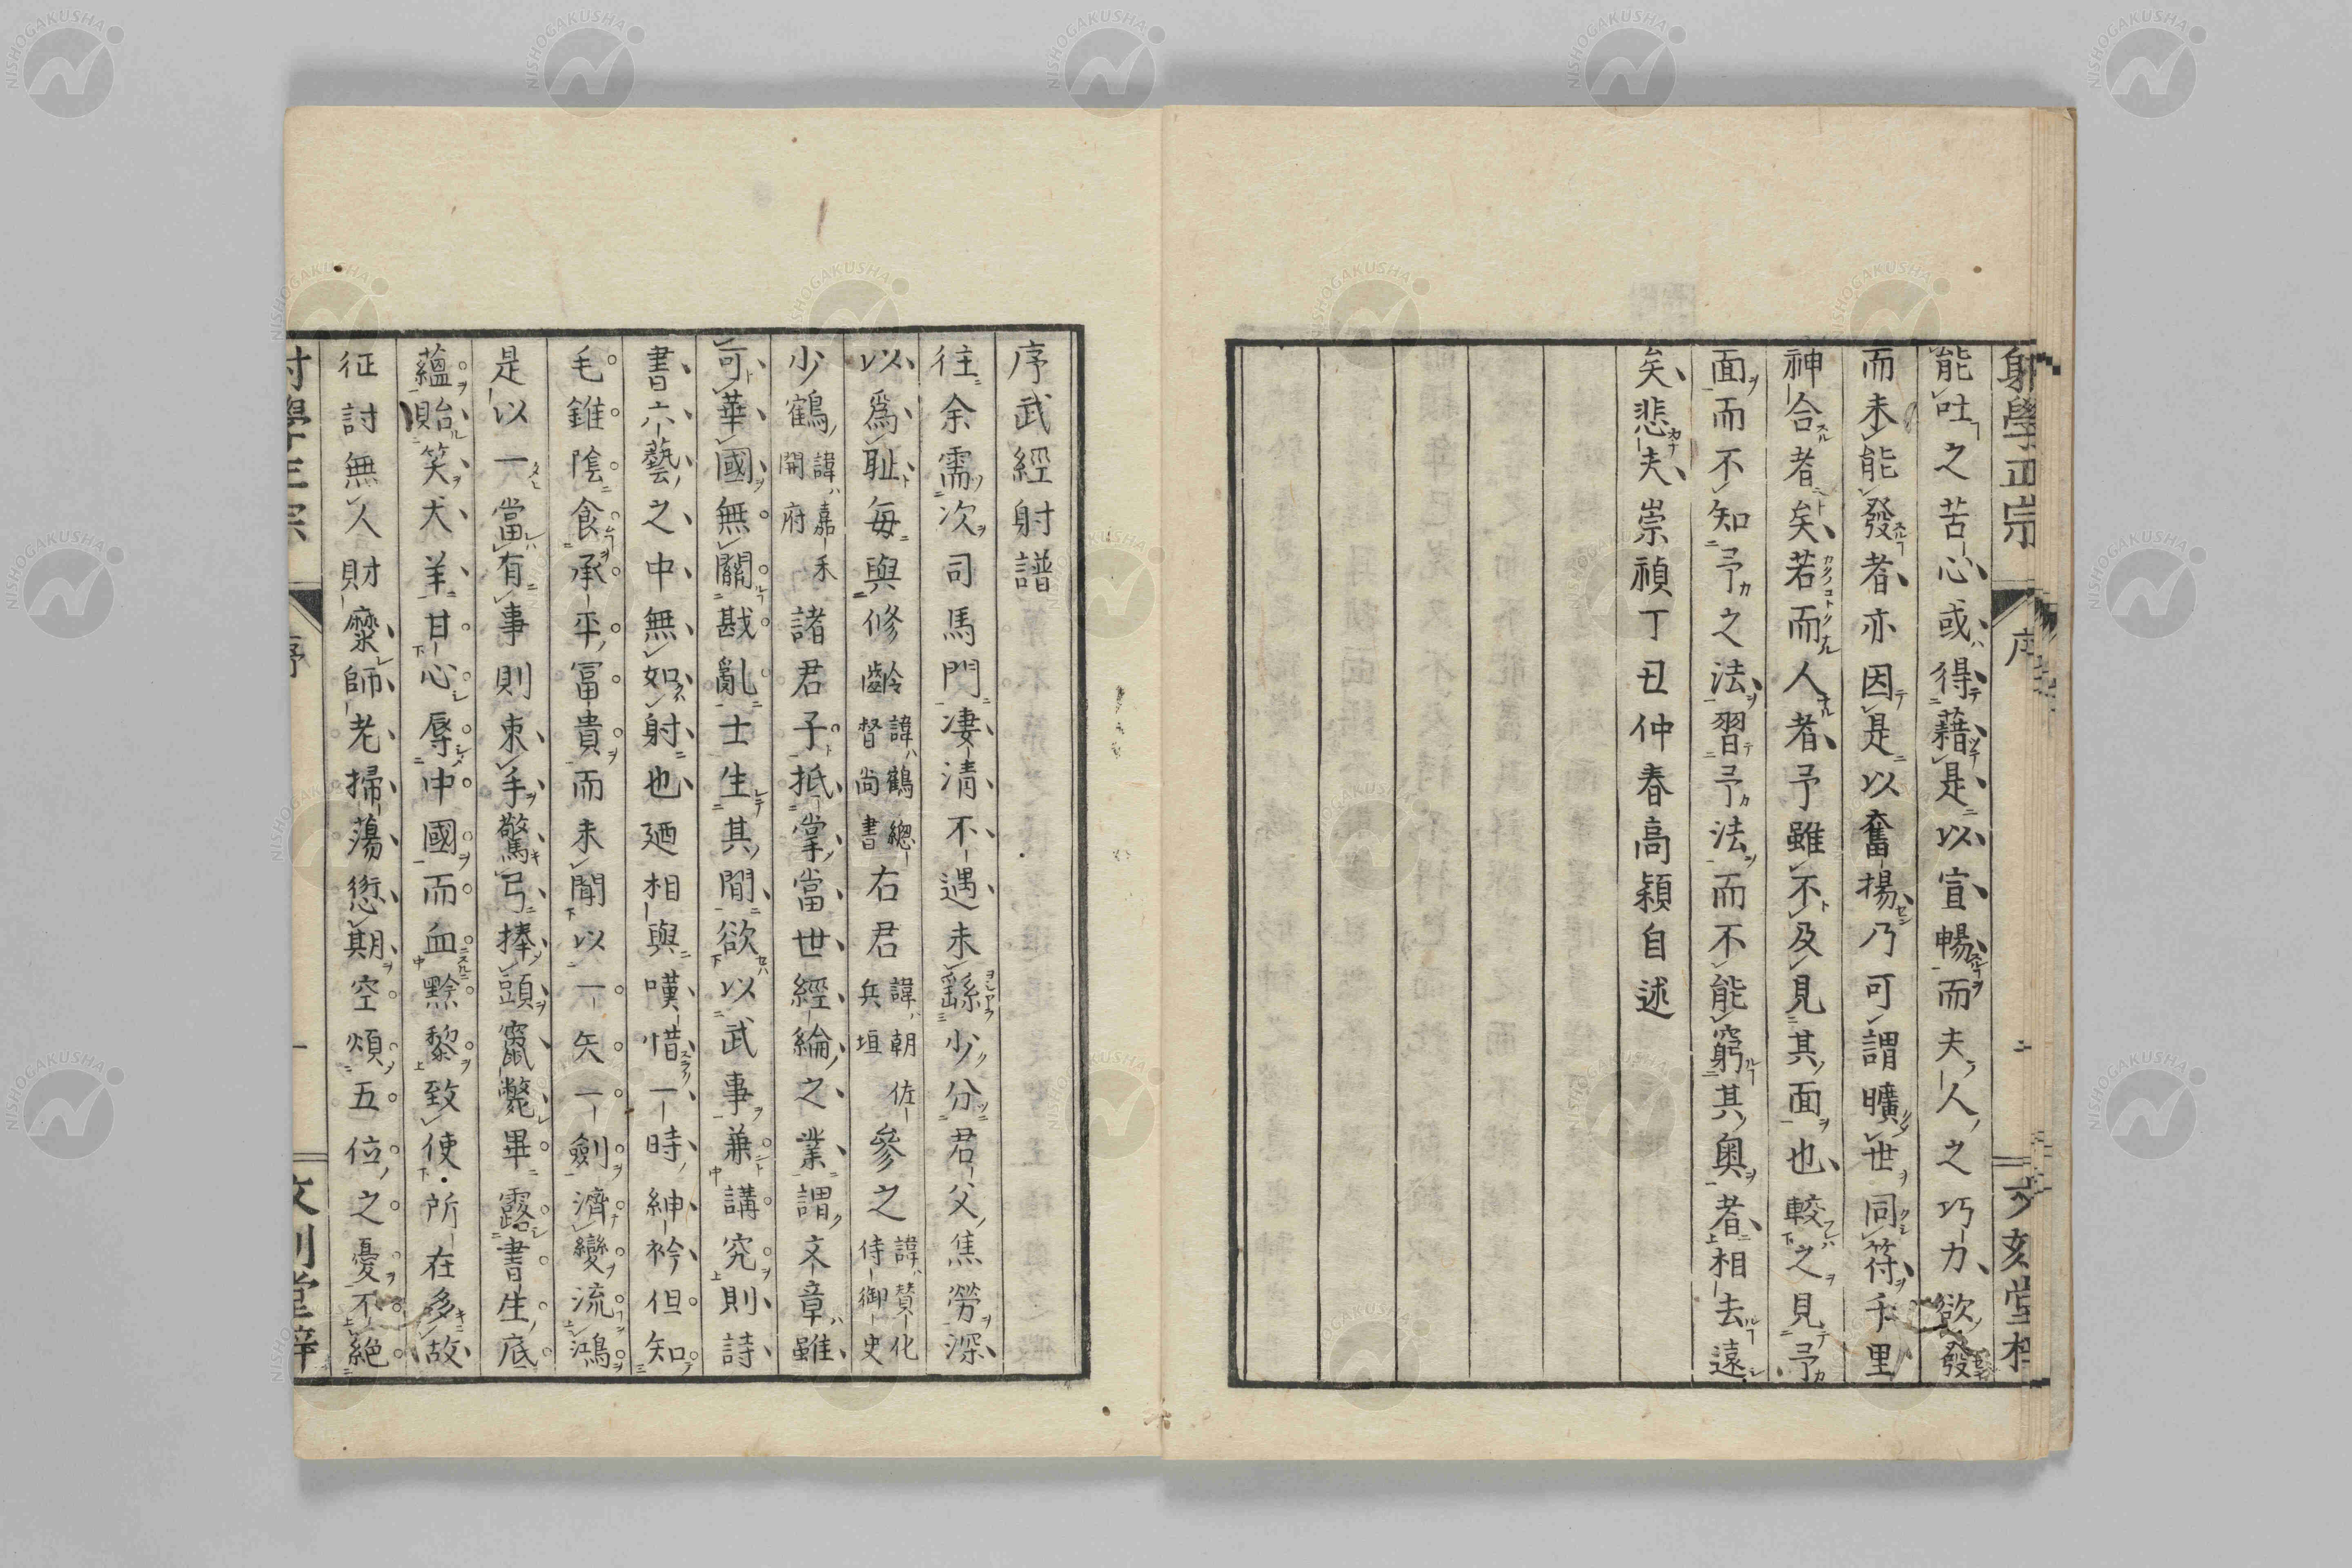 射學正宗 序 文刻堂梓
能吐之苦心或得藉是以宣暢而夫人之巧力欲發
而未能發者亦因是以奮揚乃可謂曠世同符千里
神合者矣若而人者予雖不及見其面也較之見予
面而不知予之法習予法而不能窮其奥者相去遠
矣悲夫崇禎丁丑仲春高穎自述
序武經射譜
往余需次司馬門凄清不遇未繇少分君父焦勞深
以爲耻毎與修齡諱鶴總督尚書右君諱朝佐兵垣參之諱賛化侍御史
少鶴諱嘉禾開府諸君子抵掌當世經綸之業謂文章雖
可華國無關戡亂士生其間欲以武事兼講究則詩
書六藝之中無如射也廼相與嘆惜一時紳衿但知
毛錐陰食承平冨貴而未聞以一矢一劍濟變流鴻
是以一當有事則束手驚弓捧頭竄斃畢露書生底
蘊貽笑犬羊甘心辱中國而血黥黎致使所在多故
征討無人財糜師老掃蕩愆期空煩五位之憂不絕
射學正宗 序 一 文刻堂梓